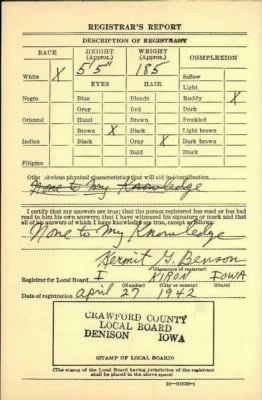 REGISTRAR'S REPORT
DESCRIPTION OF REGISTRANT
RACE HEIGHT (Approx.) WEIGHT (Approx.) COMPLEXION
White X 5'5" 185 Sallow
EYES HAIR Light
Negro Blue Blonde Ruddy X
Gray Red Dark
Oriental Hazel Brown Freckled
Brown X Black Light brown
Indian Black Gray X Dark brown
Bald Black
Filipino
Other obvious physical characteristics that will aid in identification
None to My Knowledge
I certify that my answers are true; that the person registered has read or has had
read to him his own answers; that I have witnessed his signature or mark and that
all of his answers of which I have knowledge are true, except as follows:
None to My Knowledge
Kermit G. Benson
(Signature of registrar)
Registrar for Local Board I KIRON IOWA
(Number) (City or county) (State)
Date of registration april 27 1942
CRAWFORD COUNTY
LOCAL BOARD
DENISON IOWA
(STAMP OF LOCAL BOARD)
(The stamp of the Local Board having jurisdiction of the registrant
shall be placed in the above space)